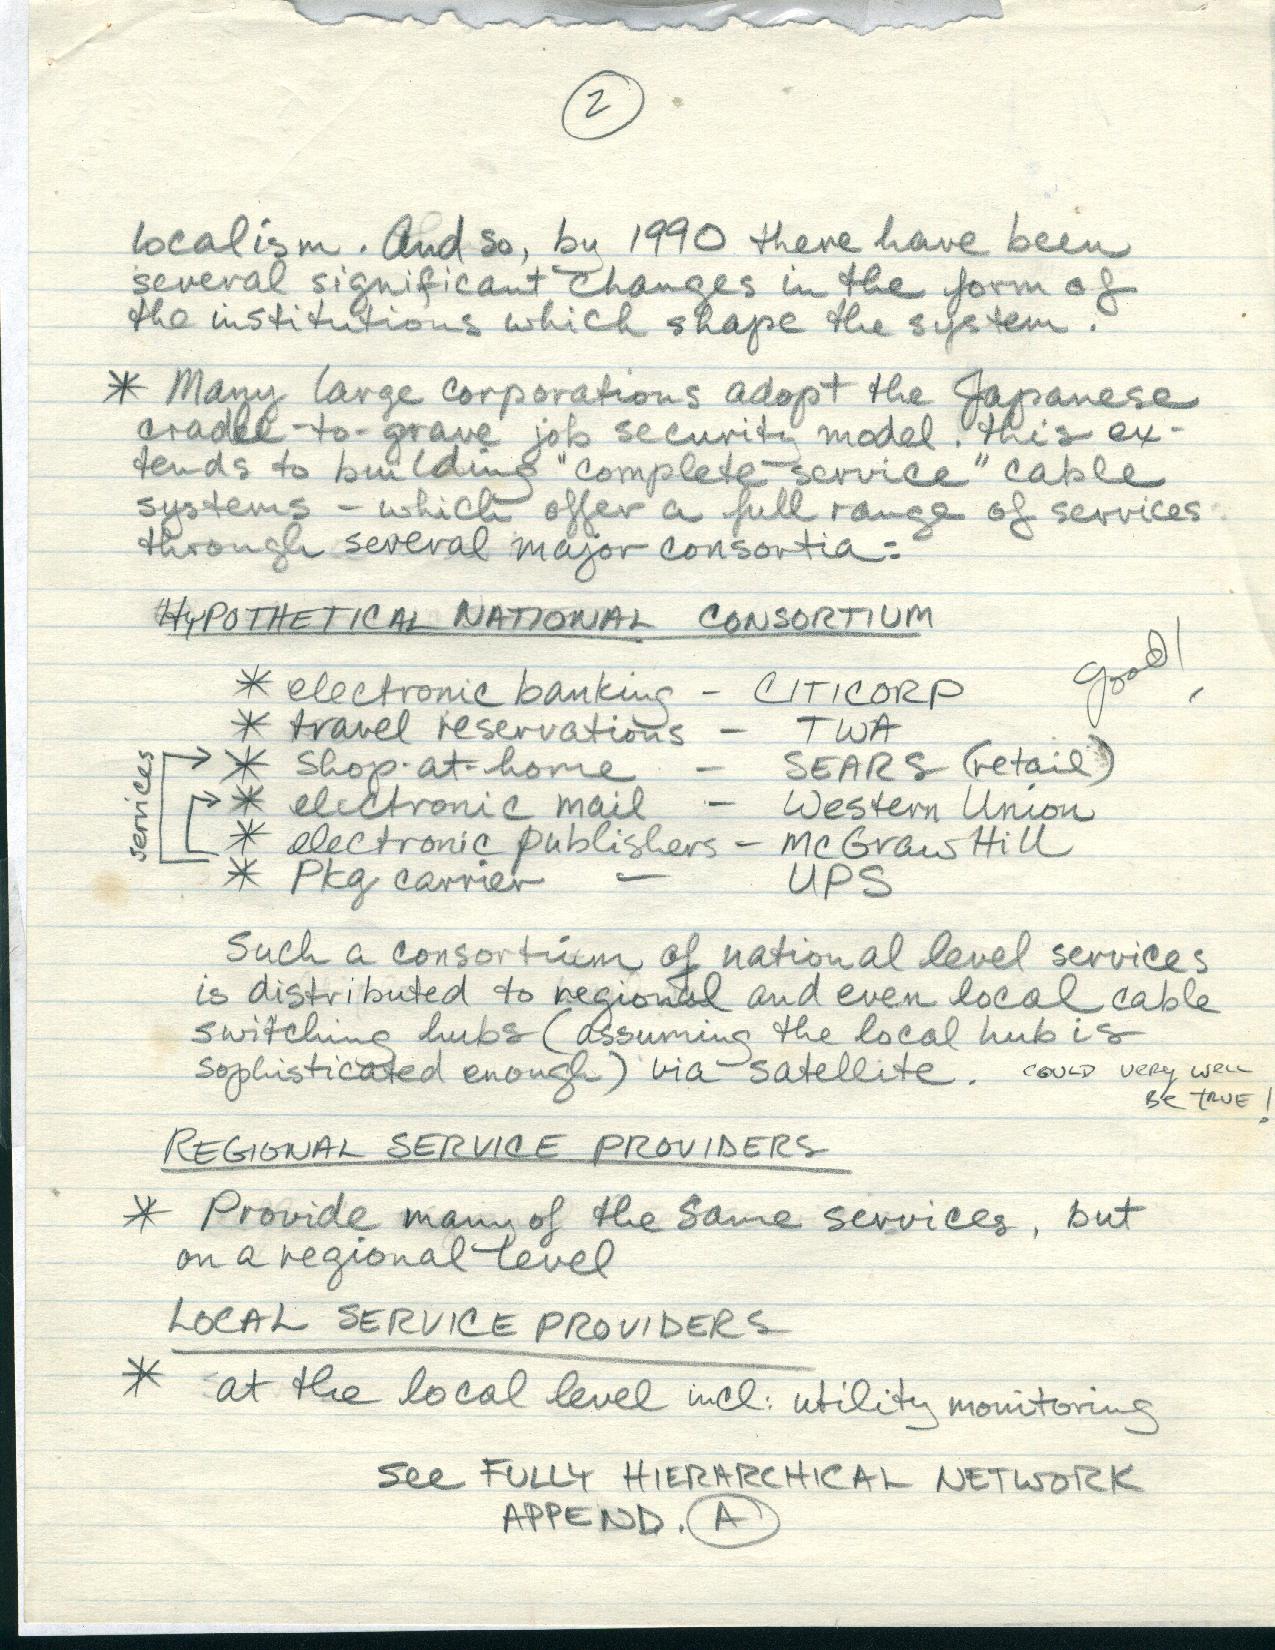 2
localism. And so, by 1990 there have been
several significant changes in the form of
the institutions which shape the system.
* Many large corporations adopt the Japanese
cradle-to-grave job security model. this ex-
tends to building "complete-service" cable
systems - which offer a full range of services
through several major consortia:
HYPOTHETICAL NATIONAL CONSORTIUM
good!
* electronic banking - CITICORP
* travel reservations - TWA
services
* Shop-at-home - SEARS (retail)
* electronic mail - Western Union
* electronic publishers - McGraw Hill
* Pkg carrier - UPS
Such a consortium of national level services
is distributed to regional and even local cable
switching hubs (assuming the local hub is
sophisticated enough) via satellite. COULD VERY WELL
BE TRUE!
REGIONAL SERVICE PROVIDERS
* Provide many of the same services, but
on a regional level
LOCAL SERVICE PROVIDERS
* at the local level incl: utility monitoring
See FULLY HIERARCHICAL NETWORK
APPEND. A